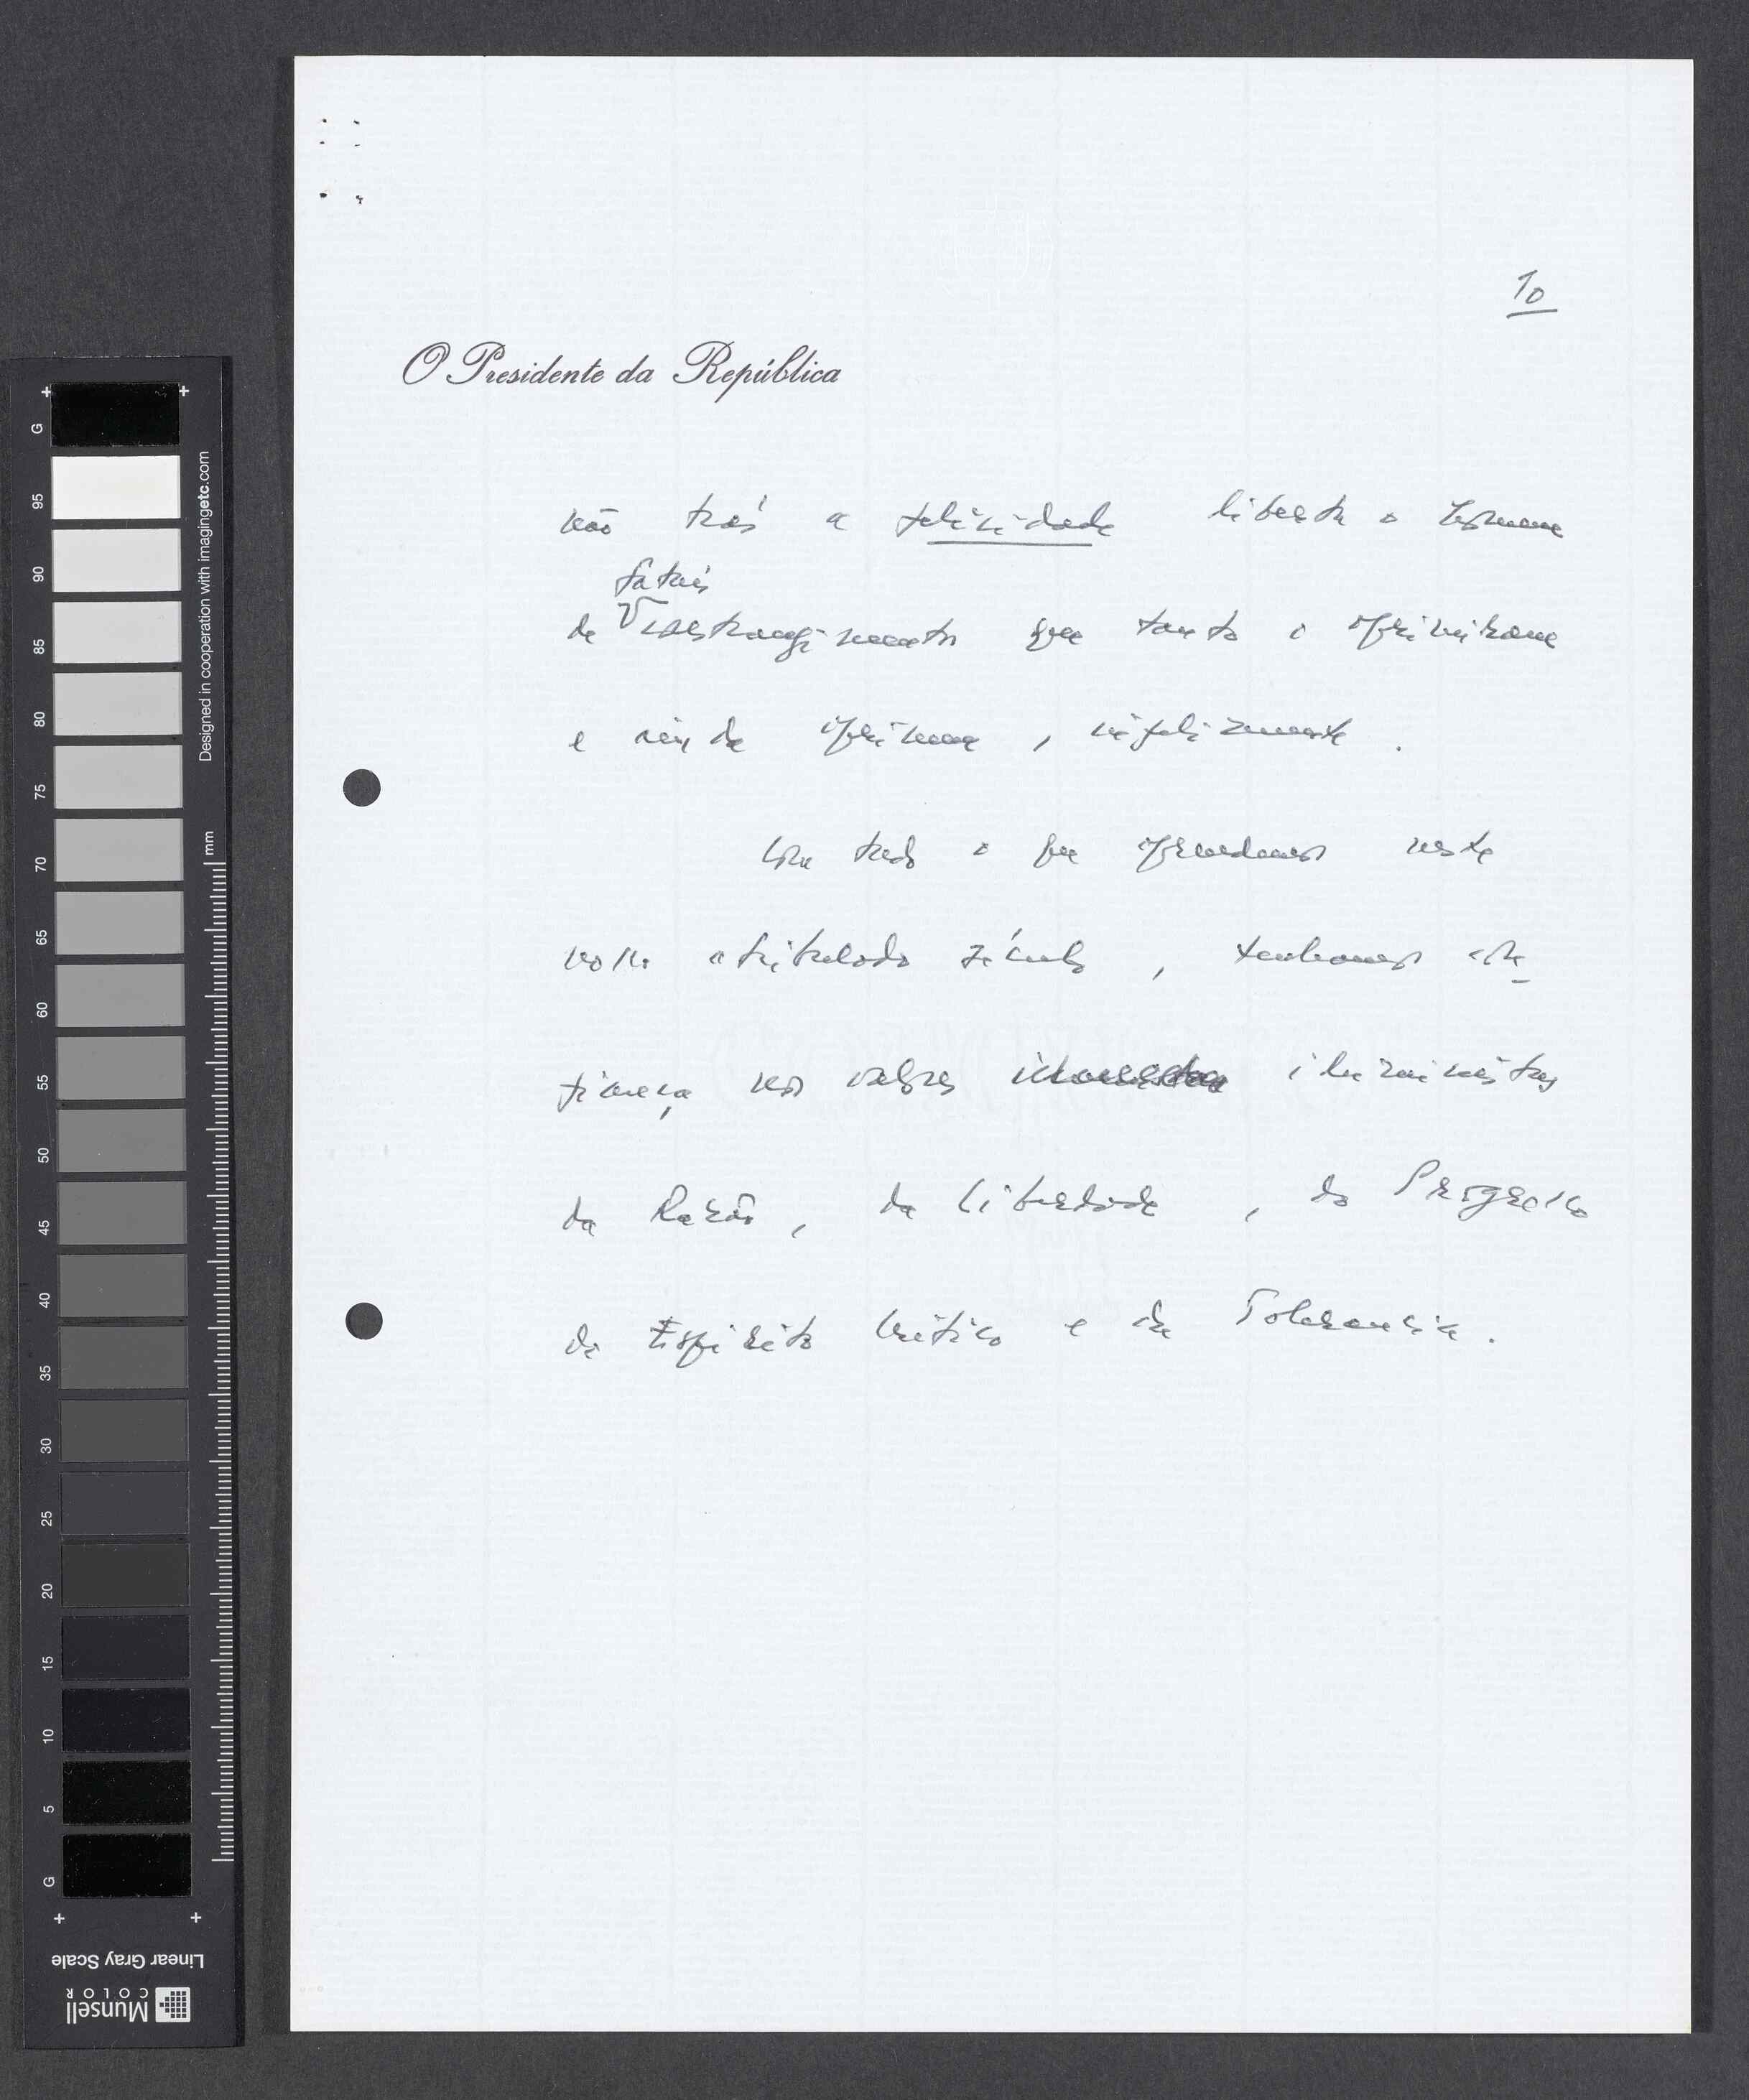 10
O Presidente da República
não trás a felicidade liberta o homem
fatais
de constrangimentos que tanto o oprimiram
e ainda oprimem, infelizmente.
Com tudo o que aprendemos neste
nosso atribulado século, tenhamos con-
fiança nos valores iluministas
da Razão, da Liberdade, do Progresso
do Espírito Crítico e da Tolerancia.
G
95
90
85
80
75
70
65
60
55
50
45
40
35
30
25
20
15
10
5
G
mm
Designed in cooperation with imagingetc.com
Linear Gray Scale
Munsell
COLOR